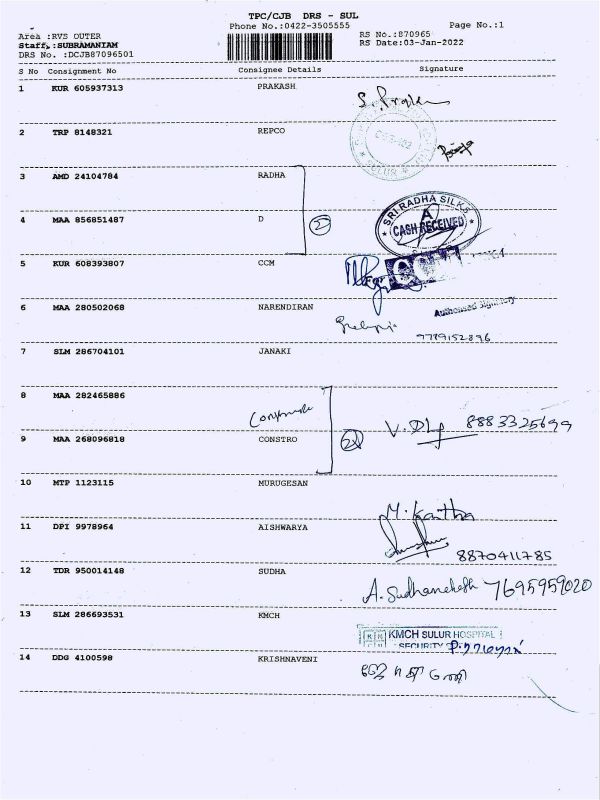 TPC/CJB DRS - SUL
Phone No.:0422-3505555 Page No.:1
Area :RVS OUTER RS No.:870965
Staff :SUBRAMANIAM RS Date:03-Jan-2022
DRS No. :DCJB87096501
S No Consignment No Consignee Details Signature
1 KUR 605937313 PRAKASH
2 TRP 8148321 REPCO
SULUR
3 AMD 24104784 RADHA
SRI RADHA SILKS
4 MAA 856851487 D 2
A
CASH RECEIVED
5 KUR 608393807 CCM
6 MAA 280502068 NARENDIRAN
Authorised Signatory
9789152896
7 SLM 286704101 JANAKI
8 MAA 282465886
V. 8883325699
9 MAA 268096818 CONSTRO
10 MTP 1123115 MURUGESAN
M. Kavitha
11 DPI 9978964 AISHWARYA
8870411785
12 TDR 950014148 SUDHA
7695959020
13 SLM 286693531 KMCH
KMCH SULUR HOSPITAL
SECURITY
14 DDG 4100598 KRISHNAVENI